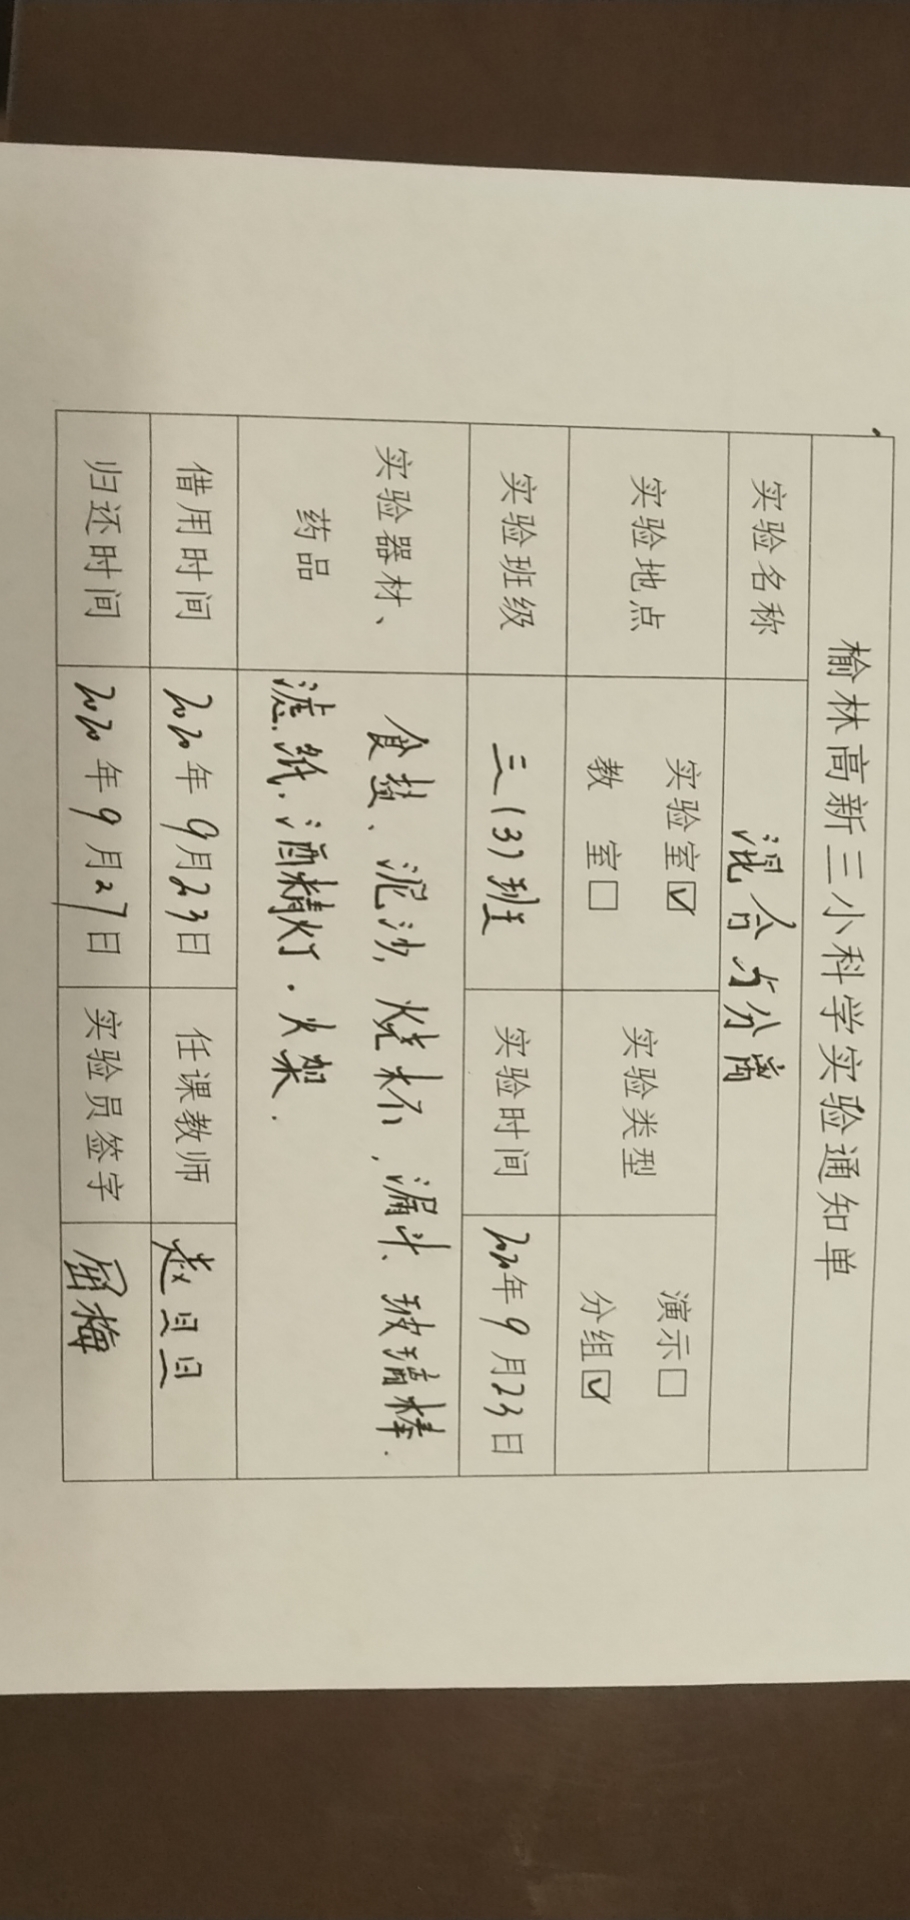 榆林高新三小科学实验通知单
实验名称 混合与分离
实验地点 实验室☑ 教 室□ 实验类型 演示□ 分组☑
实验班级 三(3)班 实验时间 2020年9月23日
实验器材、药品 食盐、泥沙,烧杯,漏斗、玻璃棒.
滤纸.酒精灯.火架.
借用时间 2020年9月23日 任课教师 赵旦旦
归还时间 2020年9月27日 实验员签字 屈梅